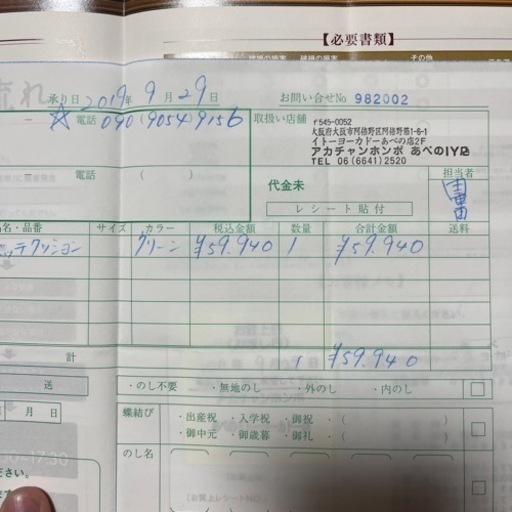 【必要書類】
その他
流れ
承り日 2019年 9月 29日
お問い合せNo 982002
☆ 電話 090(9054)9156
取扱い店舗
〒545-0052
大阪府大阪市阿倍野区阿倍野筋1-6-1
イトーヨーカドーあべの店2F
アカチャンホンポ あべのIY店
TEL 06(6641)2520
電話 ( )
代金未
担当者
レシート貼付
名・品番 サイズ カラー 税込金額 数量 合計金額 送料
グリーン ¥59.940 1 ¥59.940
計 1 ¥59.940
送
・のし不要 ・無地のし ・外のし ・内のし
月 日
蝶結び
・出産祝 ・入学祝 ・御祝 ・(
・御中元 ・御歳暮 ・御礼 ・(
のし名
ださい。